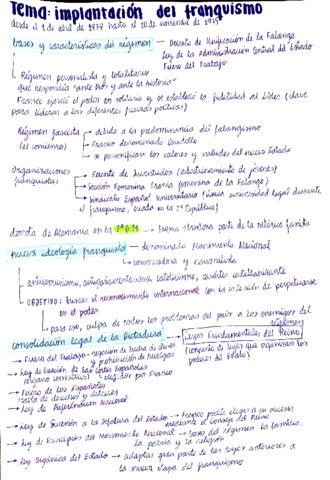 Tema: implantación del franquismo
desde el 1 de abril de 1939 hasta el 20 de noviembre de 1975
bases y características del régimen
→ Decreto de Unificación de la Falange
Ley de la Administración Central del Estado
Fuero del Trabajo
→ Régimen personalista y totalitario
que respondía "ante Dios y ante la historia"
Franco ejerció el poder en solitario y se estableció la fidelidad al líder (clave
para liderar a las diferentes fuerzas políticas)
Régimen fascista → debido a la predominancia del falangismo
(al comienzo) → Franco denominado Caudillo
→ se personifican los valores y virtudes del nuevo Estado
Organizaciones → Frente de Juventudes (adoctrinamiento de jóvenes)
franquistas → Sección Femenina (rama femenina de la Falange)
→ Sindicato Español Universitario (único universidad legal durante
el franquismo, creado en la 2ª República)
derrota de Alemania en la 2ª G.M → Franco abandona parte de la retórica fascista
nueva ideología franquista → denominado Movimiento Nacional
→ conservadora y
→ anticomunismo, antiparlamentarismo, catolicismo,
→ OBJETIVO: buscar el reconocimiento internacional con la intención de perpetuarse
en el poder
→ para eso, culpa de todos los problemas del país a los enemigos del
consolidación legal de la Dictadura → Leyes Fundamentales del Reino
(conjunto de leyes que organizaban los
poderes del Estado)
→ Fuero del Trabajo → negación de lucha de clases
y prohibición de huelgas
→ Ley de Creación de las Cortes Españolas
(órgano consultivo) → elegidas por Franco
→ Fuero de los Españoles
→ de derechos y deberes
→ Ley de Referéndum Nacional
→ Ley de Sucesión a la Jefatura del Estado → Franco podía elegir a su sucesor
mediante el Consejo del Reino
→ Ley de Principios del Movimiento Nacional → bases del régimen: la familia,
la patria y la religión
→ Ley Orgánica del Estado → adaptar gran parte de las leyes anteriores a
la nueva etapa del franquismo